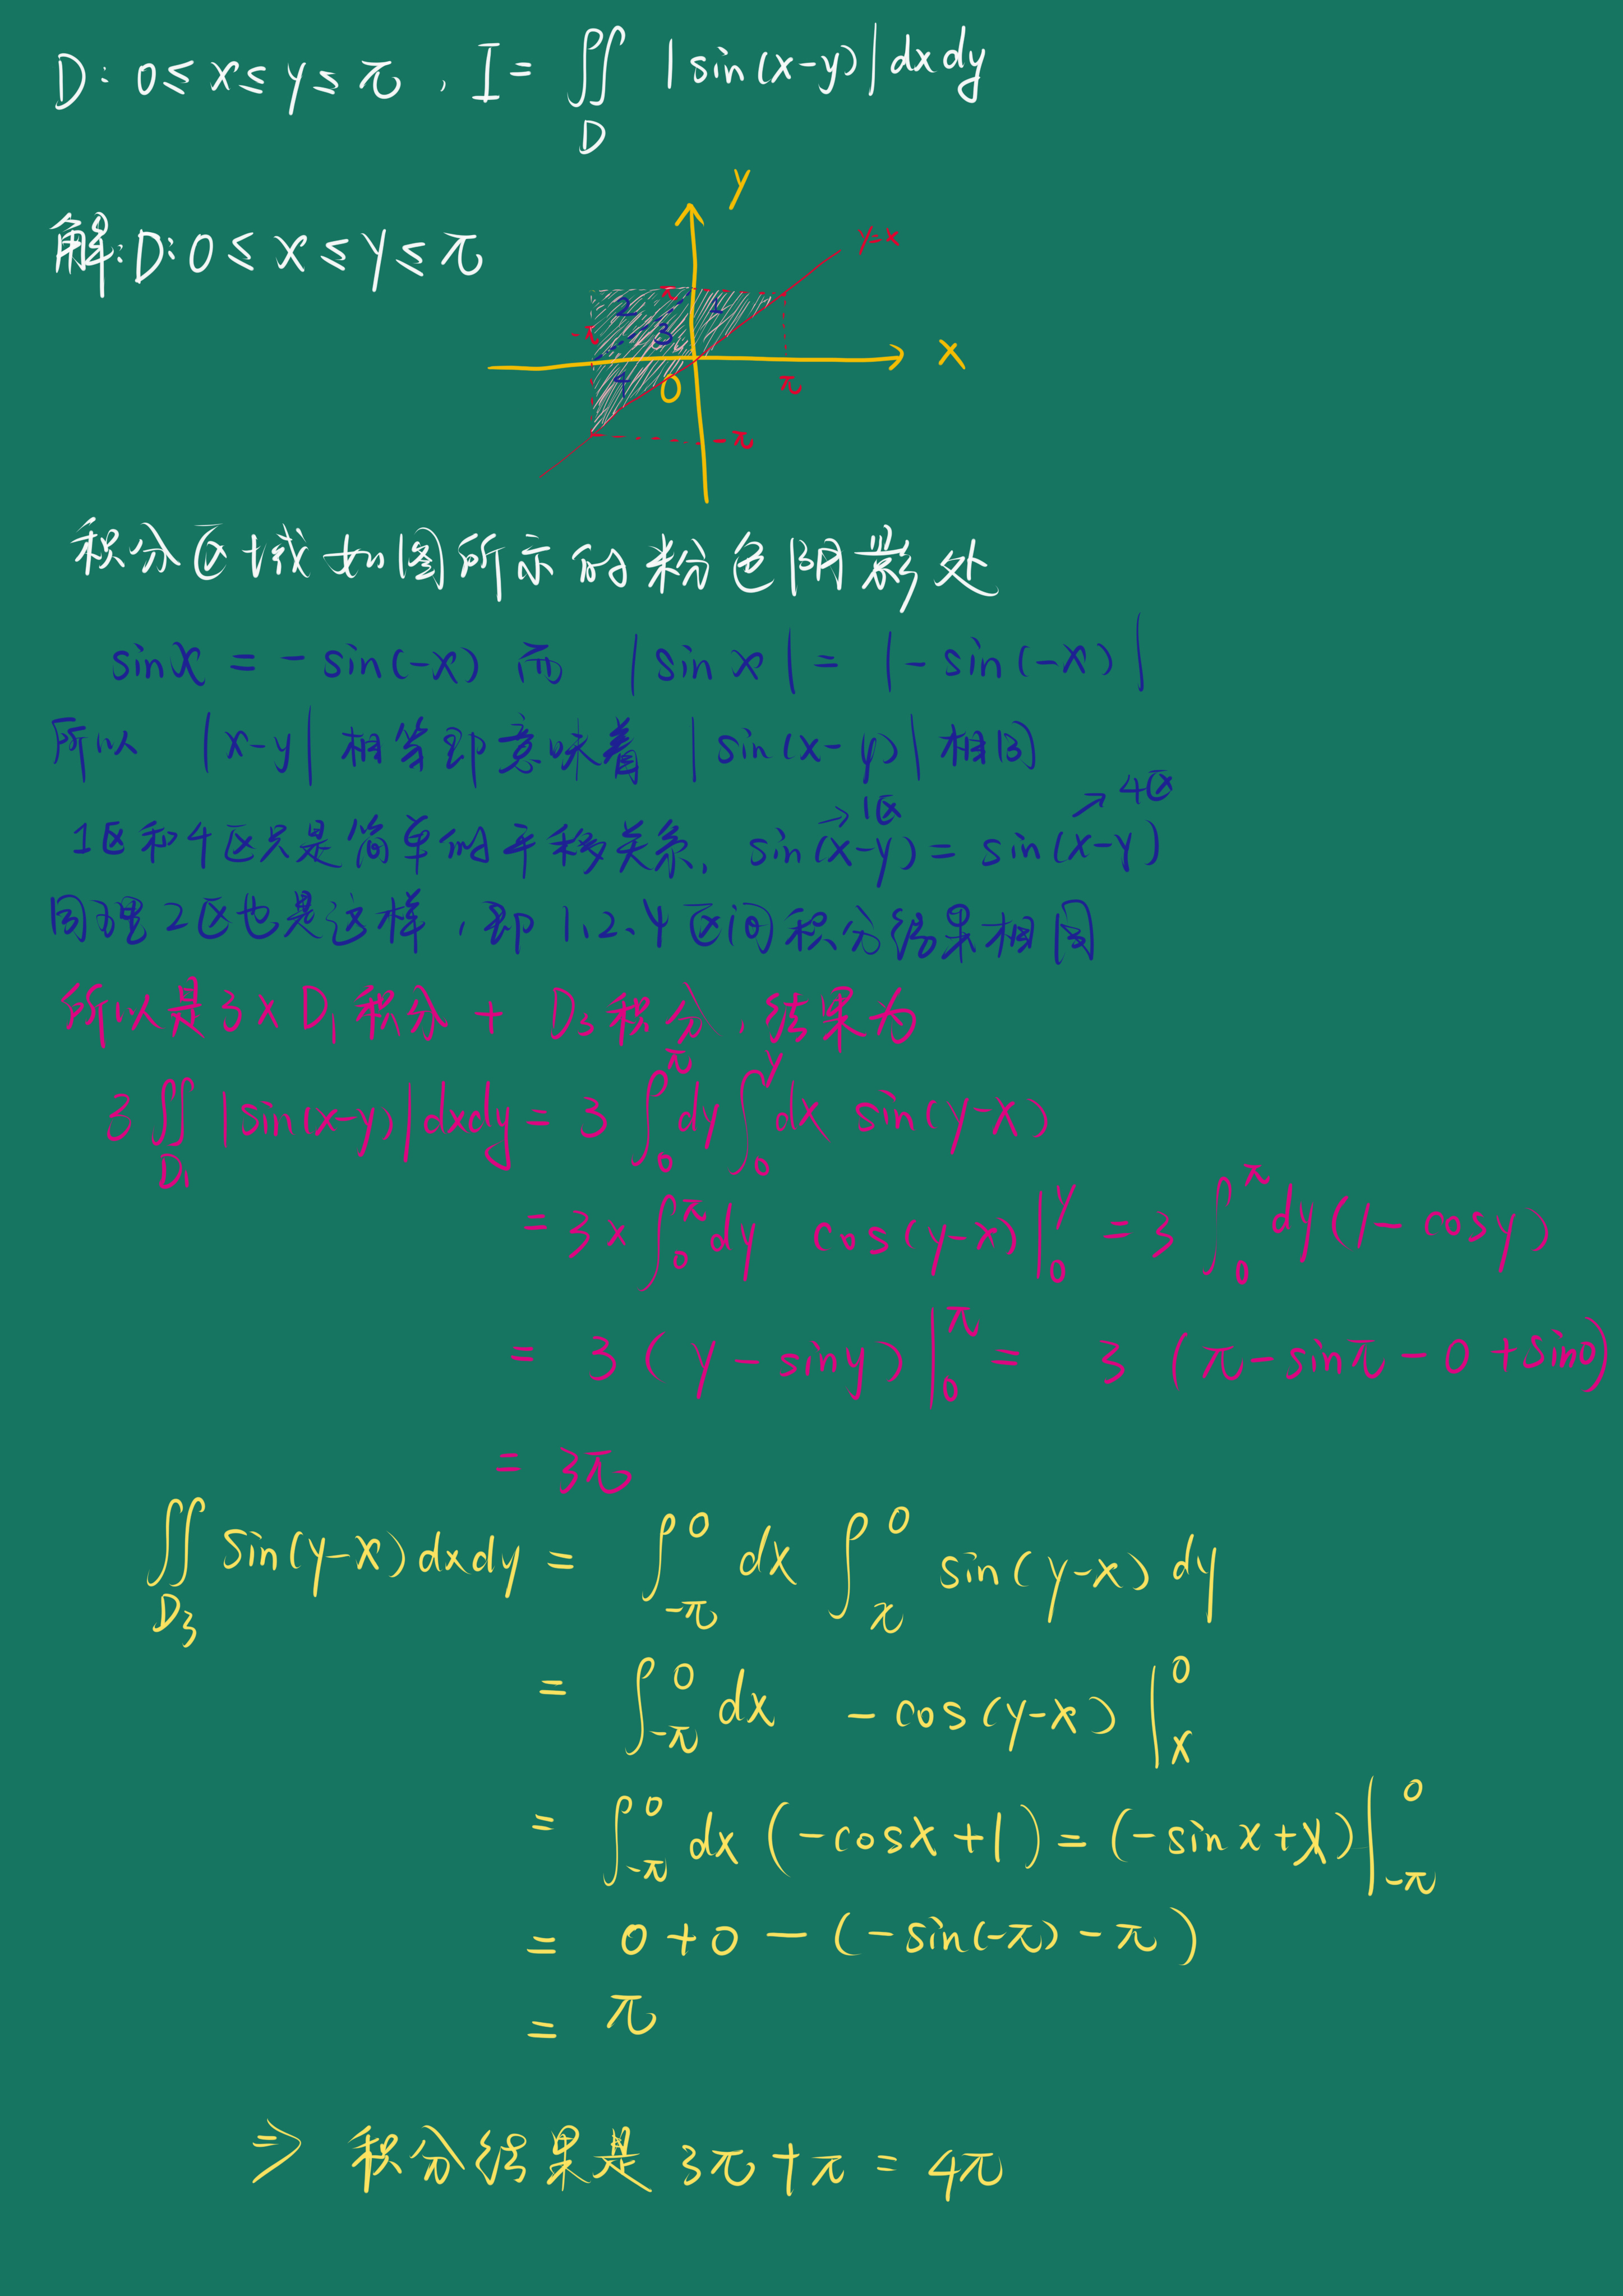 D: 0≤x≤y≤π, I=∬_D |sin(x-y)|dxdy
y
解: D: 0≤x≤y≤π
y=x
2 π 1
-π 3
x
4 0 π
-π
积分区域如图所示的粉色阴影处
sinx = -sin(-x) 而 |sin x| = |-sin(-x)|
所以 |x-y| 相等即意味着 |sin(x-y)| 相同
→1区 ↗4区
1区和4区只是简单的平移关系, sin(x-y) = sin(x-y)
同理2区也是这样, 即1、2、4区间积分结果相同
所以是3×D₁积分 + D₃积分, 结果为
3∬_D₁ |sin(x-y)|dxdy = 3∫_0^π dy ∫_0^y dx sin(y-x)
= 3×∫_0^π dy cos(y-x)|_0^y = 3∫_0^π dy(1-cosy)
= 3(y-siny)|_0^π = 3(π-sinπ-0+sin0)
= 3π
∬_D₃ sin(y-x)dxdy = ∫_-π^0 dx ∫_x^0 sin(y-x)dy
= ∫_-π^0 dx -cos(y-x)|_x^0
= ∫_-π^0 dx(-cosx+1) = (-sinx+x)|_-π^0
= 0+0-(-sin(-π)-π)
= π
⇒ 积分结果是 3π+π = 4π